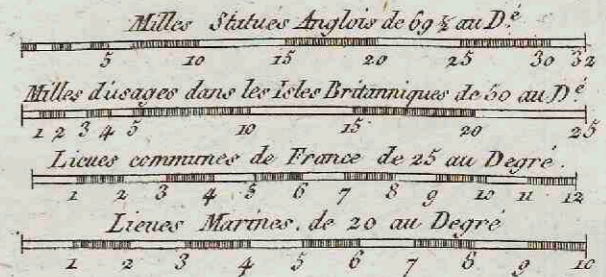 Milles Statués Anglois de 69 ½ au Dé.
5 10 15 20 25 30 32
Milles d'usages dans les Isles Britanniques de 50 au Dé
1 2 3 4 5 10 15 20 25
Lieues communes de France de 25 au Degré.
1 2 3 4 5 6 7 8 9 10 11 12
Lieues Marines. de 20 au Degré
1 2 3 4 5 6 7 8 9 10